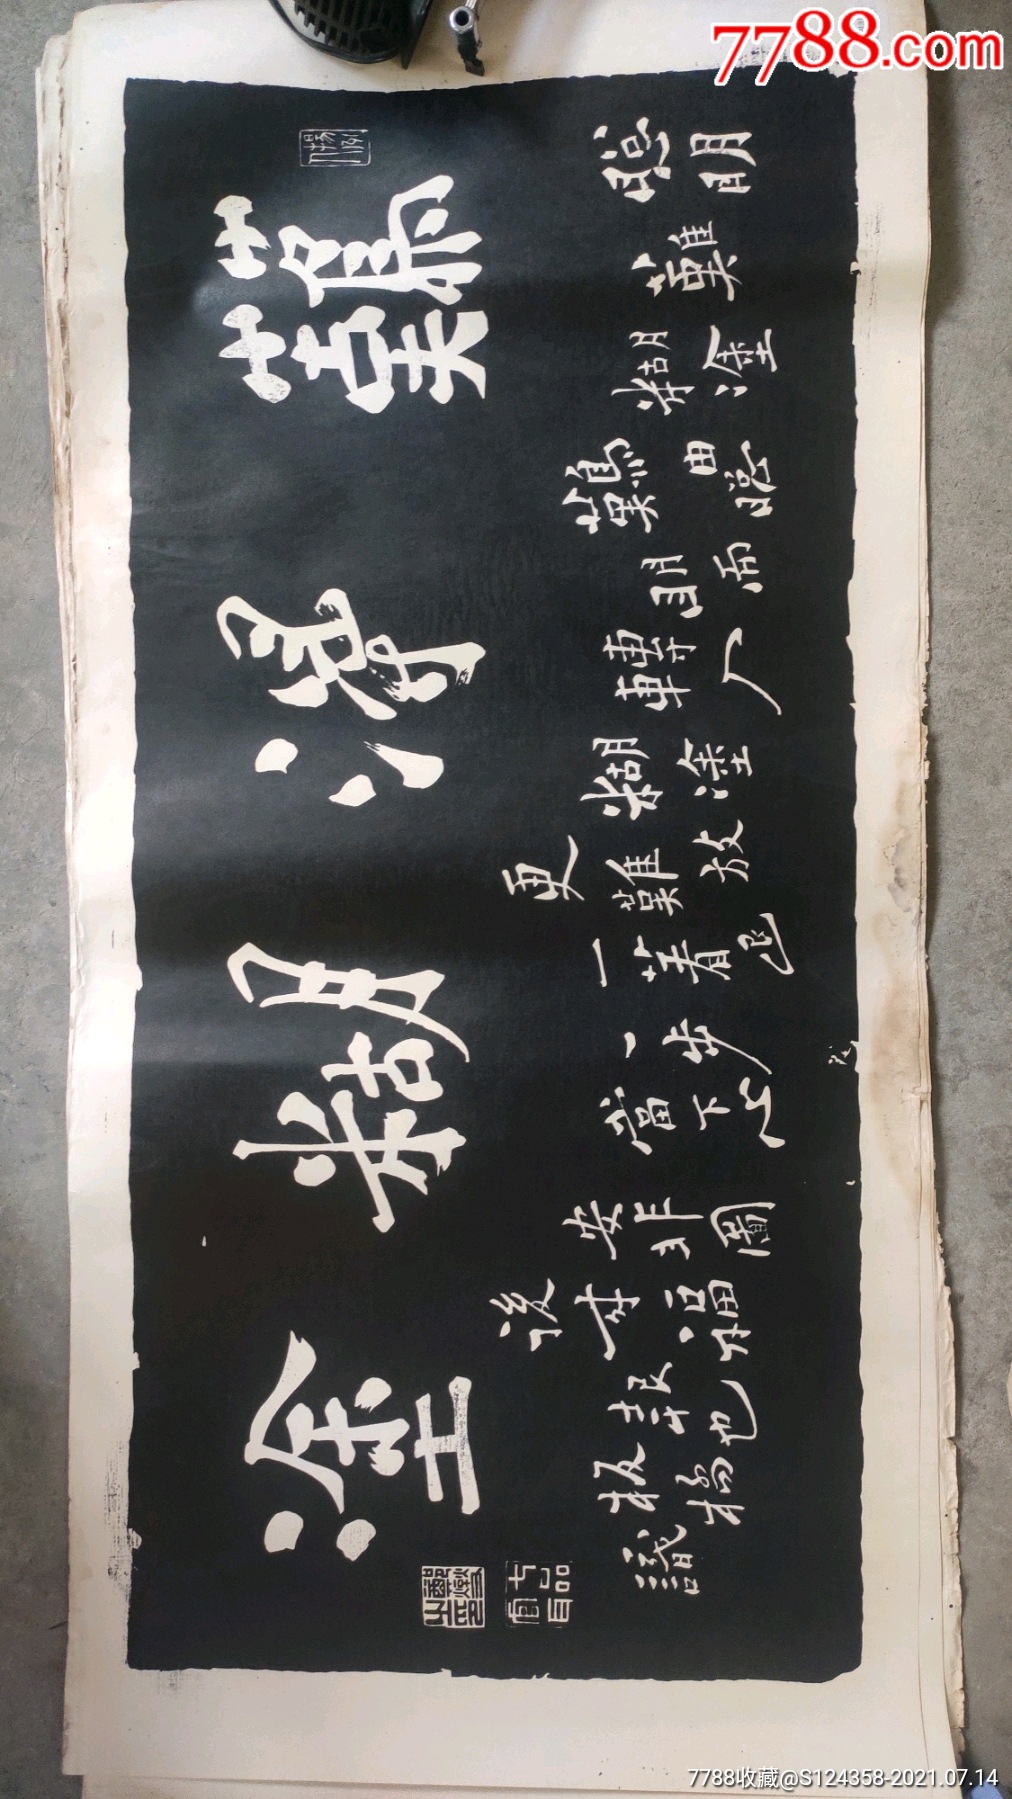 難得糊塗
聰明
難
糊塗
難由聰
明而
轉入
糊塗
更難放
一著退
一步
當下心
安非圖
後來福
報也
板橋
識
七品官耳
7788.com
7788收藏@S124358-2021.07.14